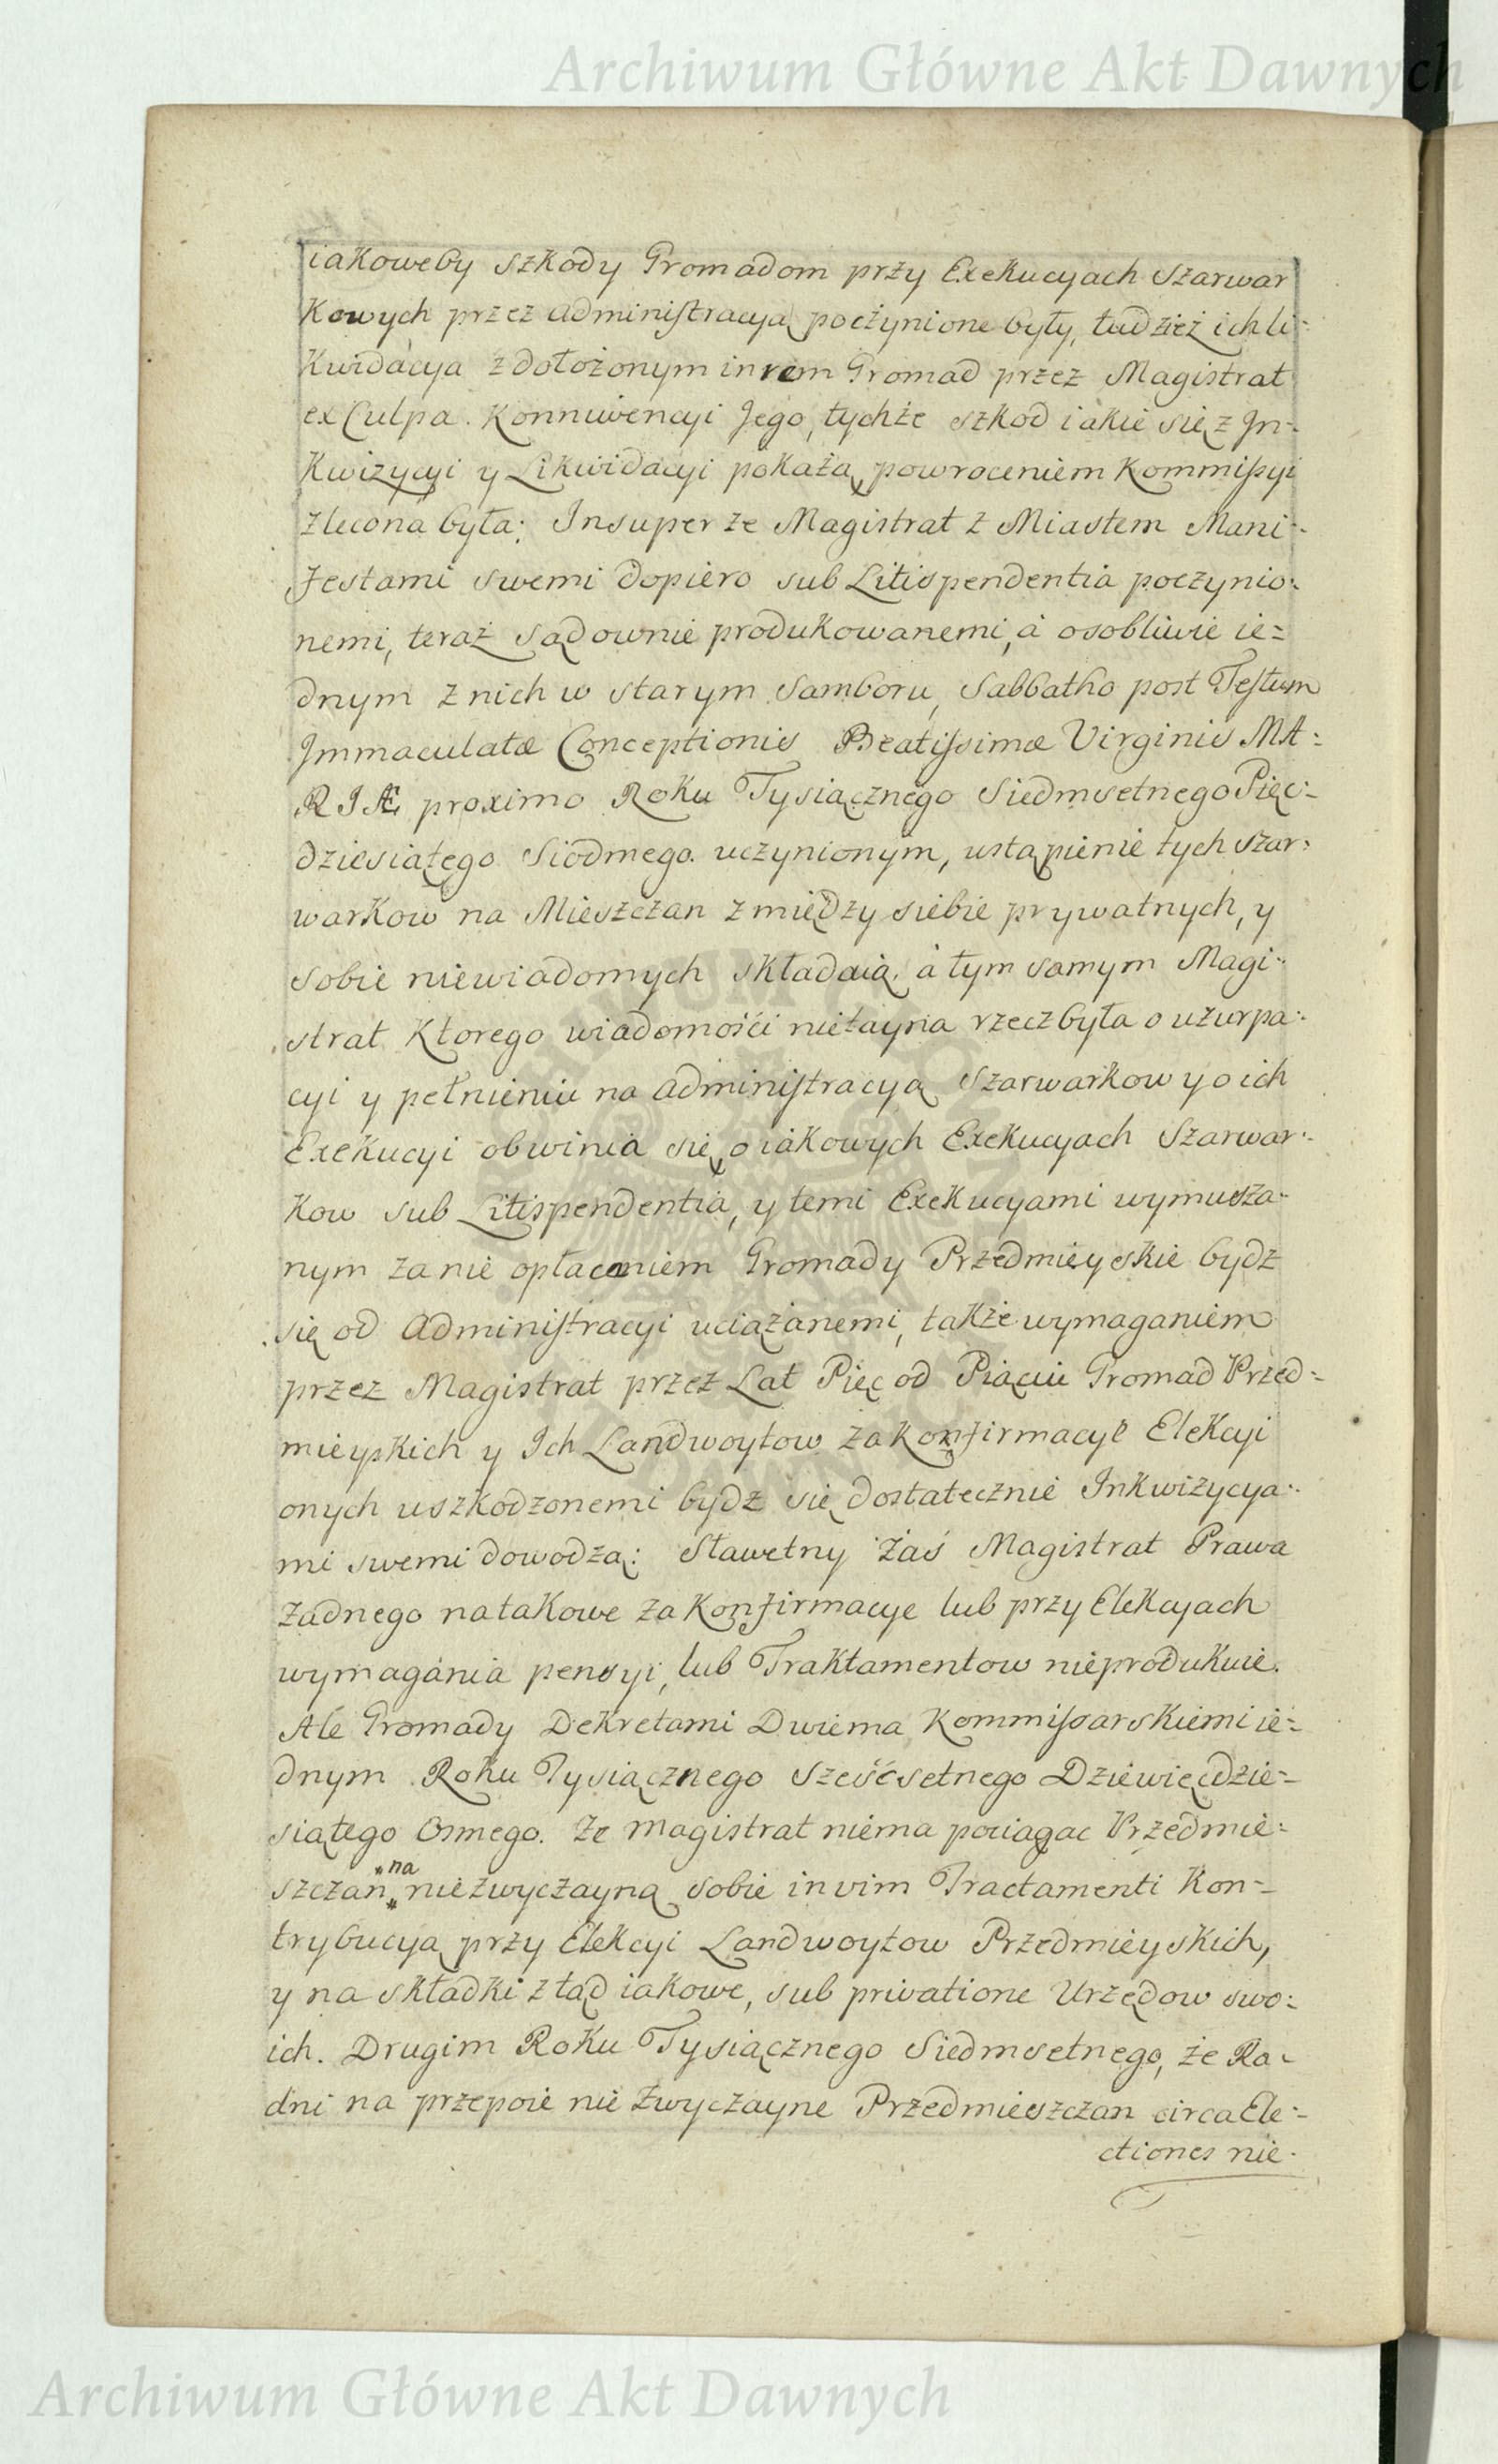 Archiwum Główne Akt Dawnych
iakoweby szkody Gromadom przy Exekucyach Szarwar
kowych przez administracyą poczynione były, tudzież ich li-
kwidacya z dołożonym in rem Gromad przez Magistrat
ex Culpa Konniwencyi Jego, tychże szkod iakie się z In-
kwizycyi y Likwidacyi pokażą powroceniem Kommissyi
zlecona była; Insuper że Magistrat z Miastem Mani-
festami swemi dopiero sub Litispendentia poczynio-
nemi, teraz sądownie produkowanemi, á osobliwie ie-
dnym z nich w starym Samboru, Sabbatho post Festum
Immaculatæ Conceptionis Beatissimæ Virginis MA-
RIÆ proximo Roku Tysiącznego Siedmsetnego Pięć-
dziesiątego Siodmego uczynionym, ustąpienie tych szar-
warkow na Mieszczan z między siebie prywatnych, y
sobie niewiadomych składaią, á tym samym Magi-
strat ktorego wiadomości nietayna rzecz była o uzurpa-
cyi y pełnieniu na administracyą Szarwarkow y o ich
Exekucyi obwinia się, o iakowych Exekucyach Szarwar-
kow sub Litispendentia, y temi Exekucyami wymusza-
nym za nie opłaceniem Gromady Przedmieyskie bydz
się od Administracyi uciążanemi, także wymaganiem
przez Magistrat przez Lat Pięc od Piąciu Gromad Przed-
mieyskich y Ich Landwoytow za konfirmacye Elekcyi
onych uszkodzonemi bydz się dostatecznie Inkwizycya-
mi swemi dowodzą: Sławetny zaś Magistrat Prawa
żadnego na takowe za konfirmacye lub przy Elekcyach
wymagania pensyi, lub Traktamentow nieprodukuie.
Ale Gromady Dekretami Dwiema Kommissarskiemi ie-
dnym Roku Tysiącznego Sześćsetnego Dziewięćdzie-
siątego Osmego. Ze Magistrat niema pociągac Przedmie-
szczan na niezwyczayną sobie in vim Tractamenti Kon-
trybucyą przy Elekcyi Landwoytow Przedmieyskich,
y na składki ztąd iakowe, sub privatione Urzędow swo-
ich. Drugim Roku Tysiącznego Siedmsetnego, że Ra-
dni na przepoie nie zwyczayne Przedmieszczan circa Ele-
ctiones nie-
Archiwum Główne Akt Dawnych